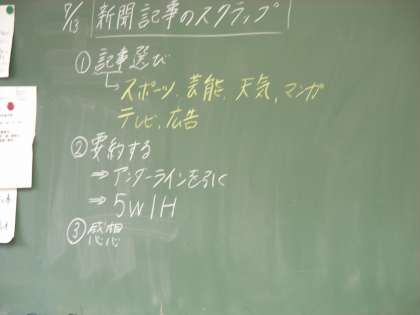 7/13 新聞記事のスクラップ
①記事選び
スポーツ、芸能、天気、マンガ
テレビ、広告
②要約する
⇒アンダーラインを引く
⇒5W1H
③感想